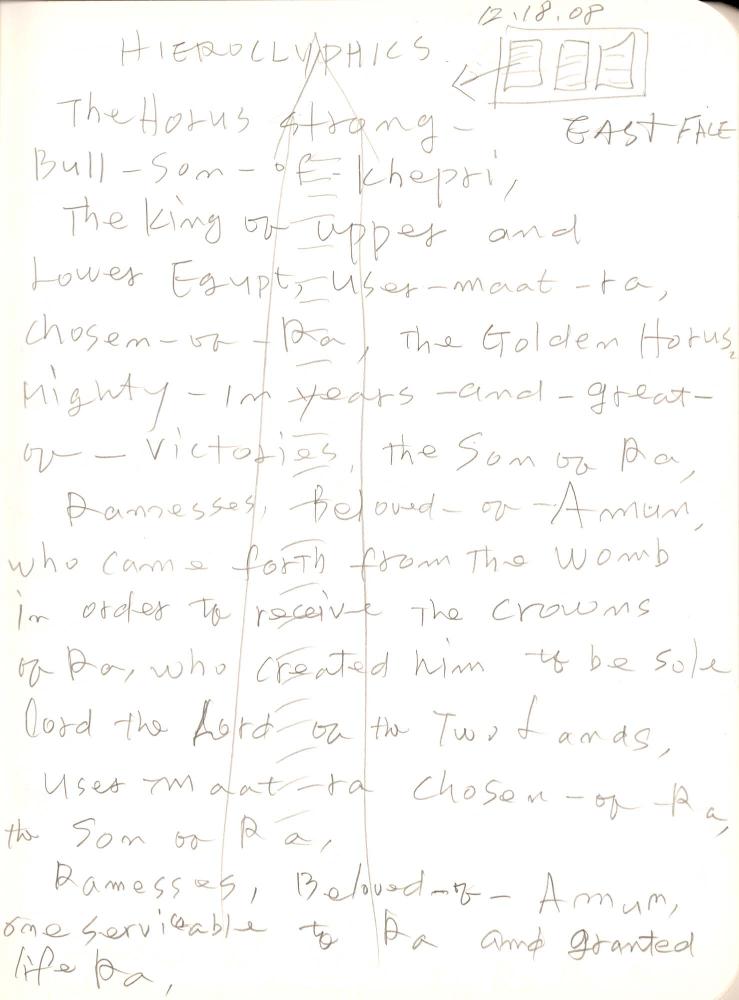 12.18.08
HIEROCLLYPHICS
EAST FACE
The Horus strong-
Bull-Son-of-Khepri,
The King of upper and
Lower Egypt, User-maat-ra,
chosen-of-Ra, The Golden Horus,
Mighty-In years-and-great-
of-Victories, the Son of Ra,
Ramesses, Beloved-of-Amun,
who came forth from The womb
in order to receive The crowns
of Ra, who created him to be sole
lord the Lord of the Two Lands,
User maat-ra chosen-of-Ra,
the Son of Ra,
Ramesses, Beloved-of-Amun,
one serviceable to Ra and granted
life Ra,